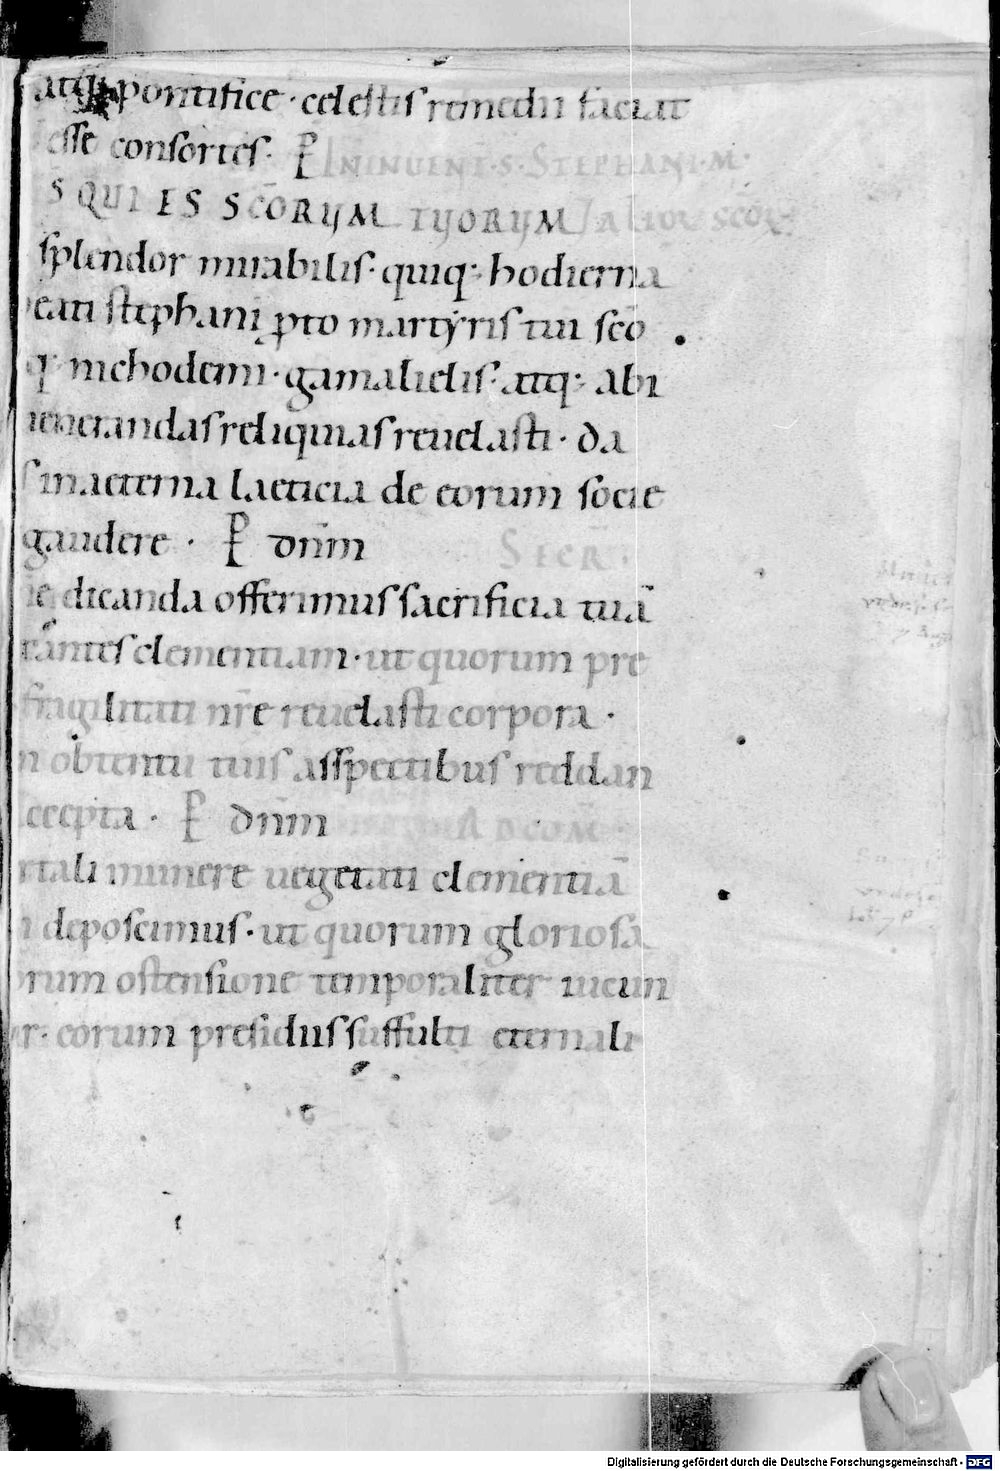 atq; pontifice · celestis remedii faciat
esse consortes. P IN INUENT̄·S·STEPHANI·M·
S QUI ES SCŌRUM TUORUM / alior̄ scōr̄
splendor mirabilis· quiq; hodierna
eati stephani p̱to martyris tui scō
q; nichodemi· gamalielis· atq; abi
uenerandas reliquias reuelasti· da
s in aeterna laeticia de eorum socie
gaudere · P dnm̄
dicanda offerimus sacrificia tuā
clementiam· ut quorum pre
fragilitati nr̄e reuelasti corpora ·
obtentu tuis asspectibus reddan
accepta · P dnm̄ AD COM̄
rtali munere uegetati clementiā
deposcimus· ut quorum gloriosa
orum ostensione temporaliter iucun
ur· eorum presidiis suffulti eternali
SECR̄·
Digitalisierung gefördert durch die Deutsche Forschungsgemeinschaft - DFG